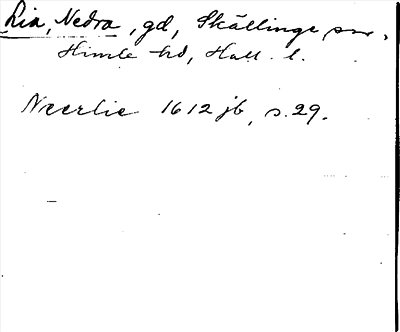 Lia, Nedra, gd, Skällinge sn,
Himle hd, Hall. l.
Neerlie 1612 jb, s. 29.